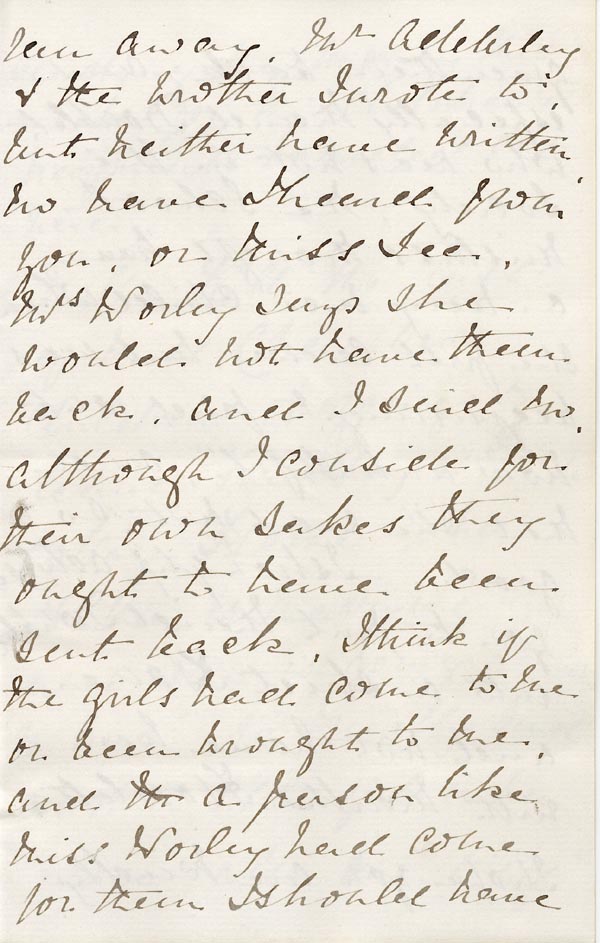 run away. Mr Adderley
& the brother I wrote to,
but neither have written,
no have I heard from
you, or Miss Lee,
Mrs Norley says she
would not have them
back, and I said no,
although I conside for
their own sakes they
ought to have been
sent back, I think if
the girls had come to me
or been brought to me,
and a person like
Miss Norley had come
for them I should have